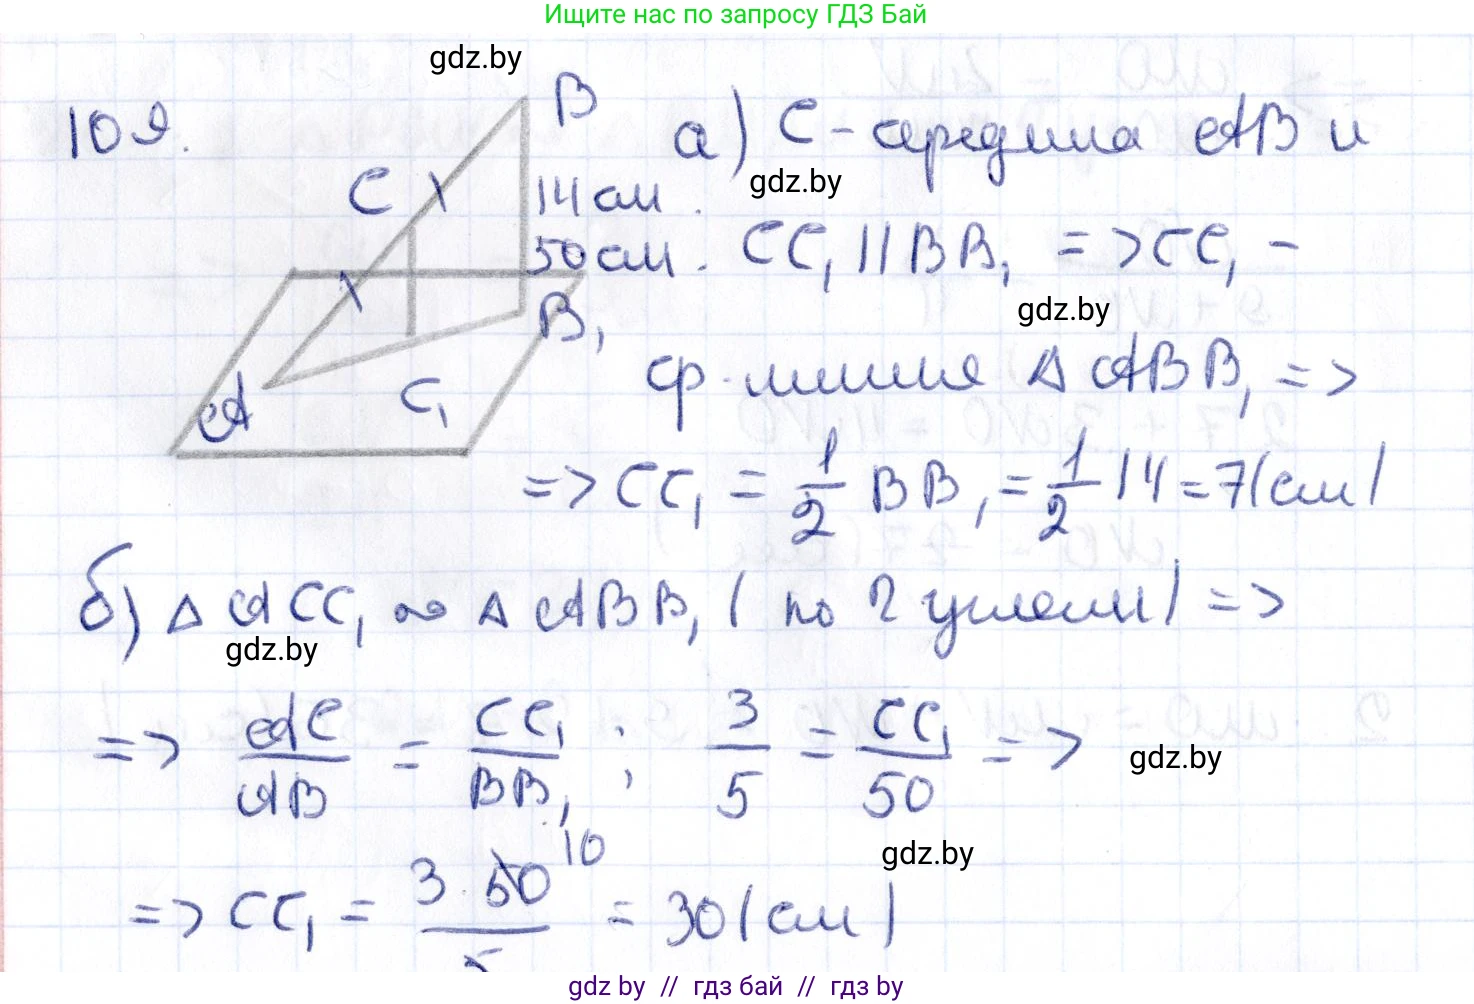 Ищите нас по запросу ГДЗ Бай
gdz.by
109.
B
C
14 см
50 см.
A
C₁
B₁
а) C - середина AB и
gdz.by
CC₁ || BB₁ => CC₁ -
gdz.by
ср. линия Δ ABB₁ =>
=> CC₁ = 1/2 BB₁ = 1/2 14 = 7 (см)
б) Δ ACC₁ ∾ Δ ABB₁ ( по 2 углам) =>
gdz.by
=> AC/AB = CC₁/BB₁ ; 3/5 = CC₁/50 =>
gdz.by
gdz.by
=> CC₁ = 3 · 50 10 / 5 = 30 (см)
gdz by // гдз бай // гдз by